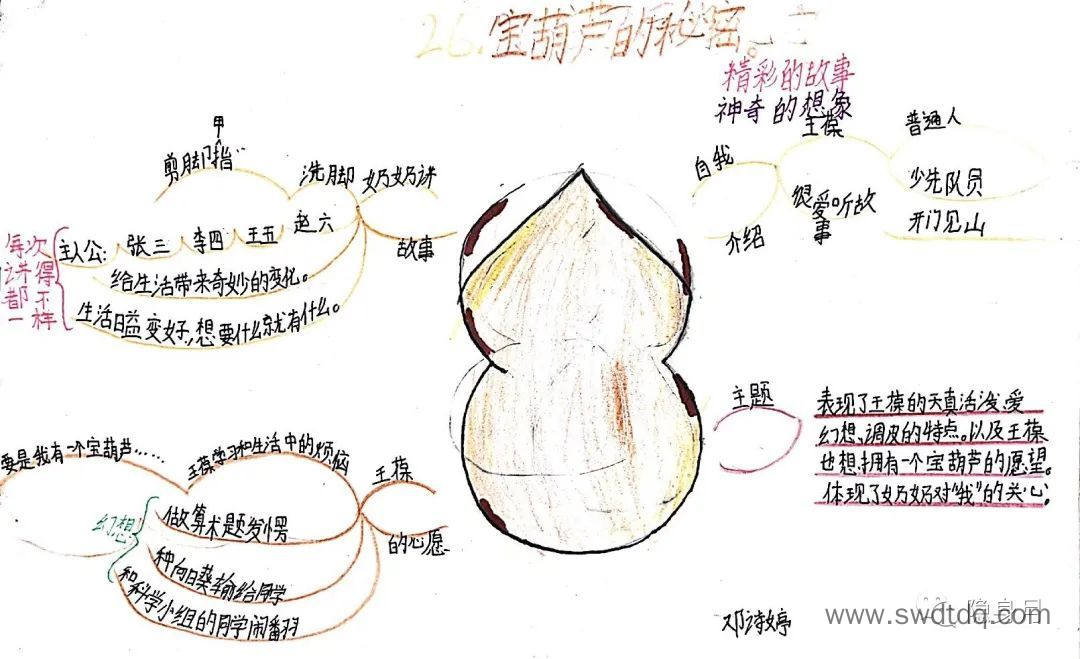 26.宝葫芦的秘密。
精彩的故事
神奇的想象
自我
介绍
王葆
很爱听故
事
普通人
少先队员
开门见山
奶奶讲
故事
洗脚
剪脚指甲…
每次
讲得
都不
一样
主人公:张三 李四 王五 赵六
给生活带来奇妙的变化。
生活日益变好,想要什么就有什么。
主题
表现了王葆的天真活泼、爱
幻想、调皮的特点。以及王葆
也想拥有一个宝葫芦的愿望。
体现了奶奶对“我”的关心;
王葆
的心愿
王葆学习和生活中的烦恼
要是我有一个宝葫芦……
幻想
做算术题发愣
种向日葵输给同学
和科学小组的同学闹翻
邓诗婷
隐身号
www.swdtdq.com